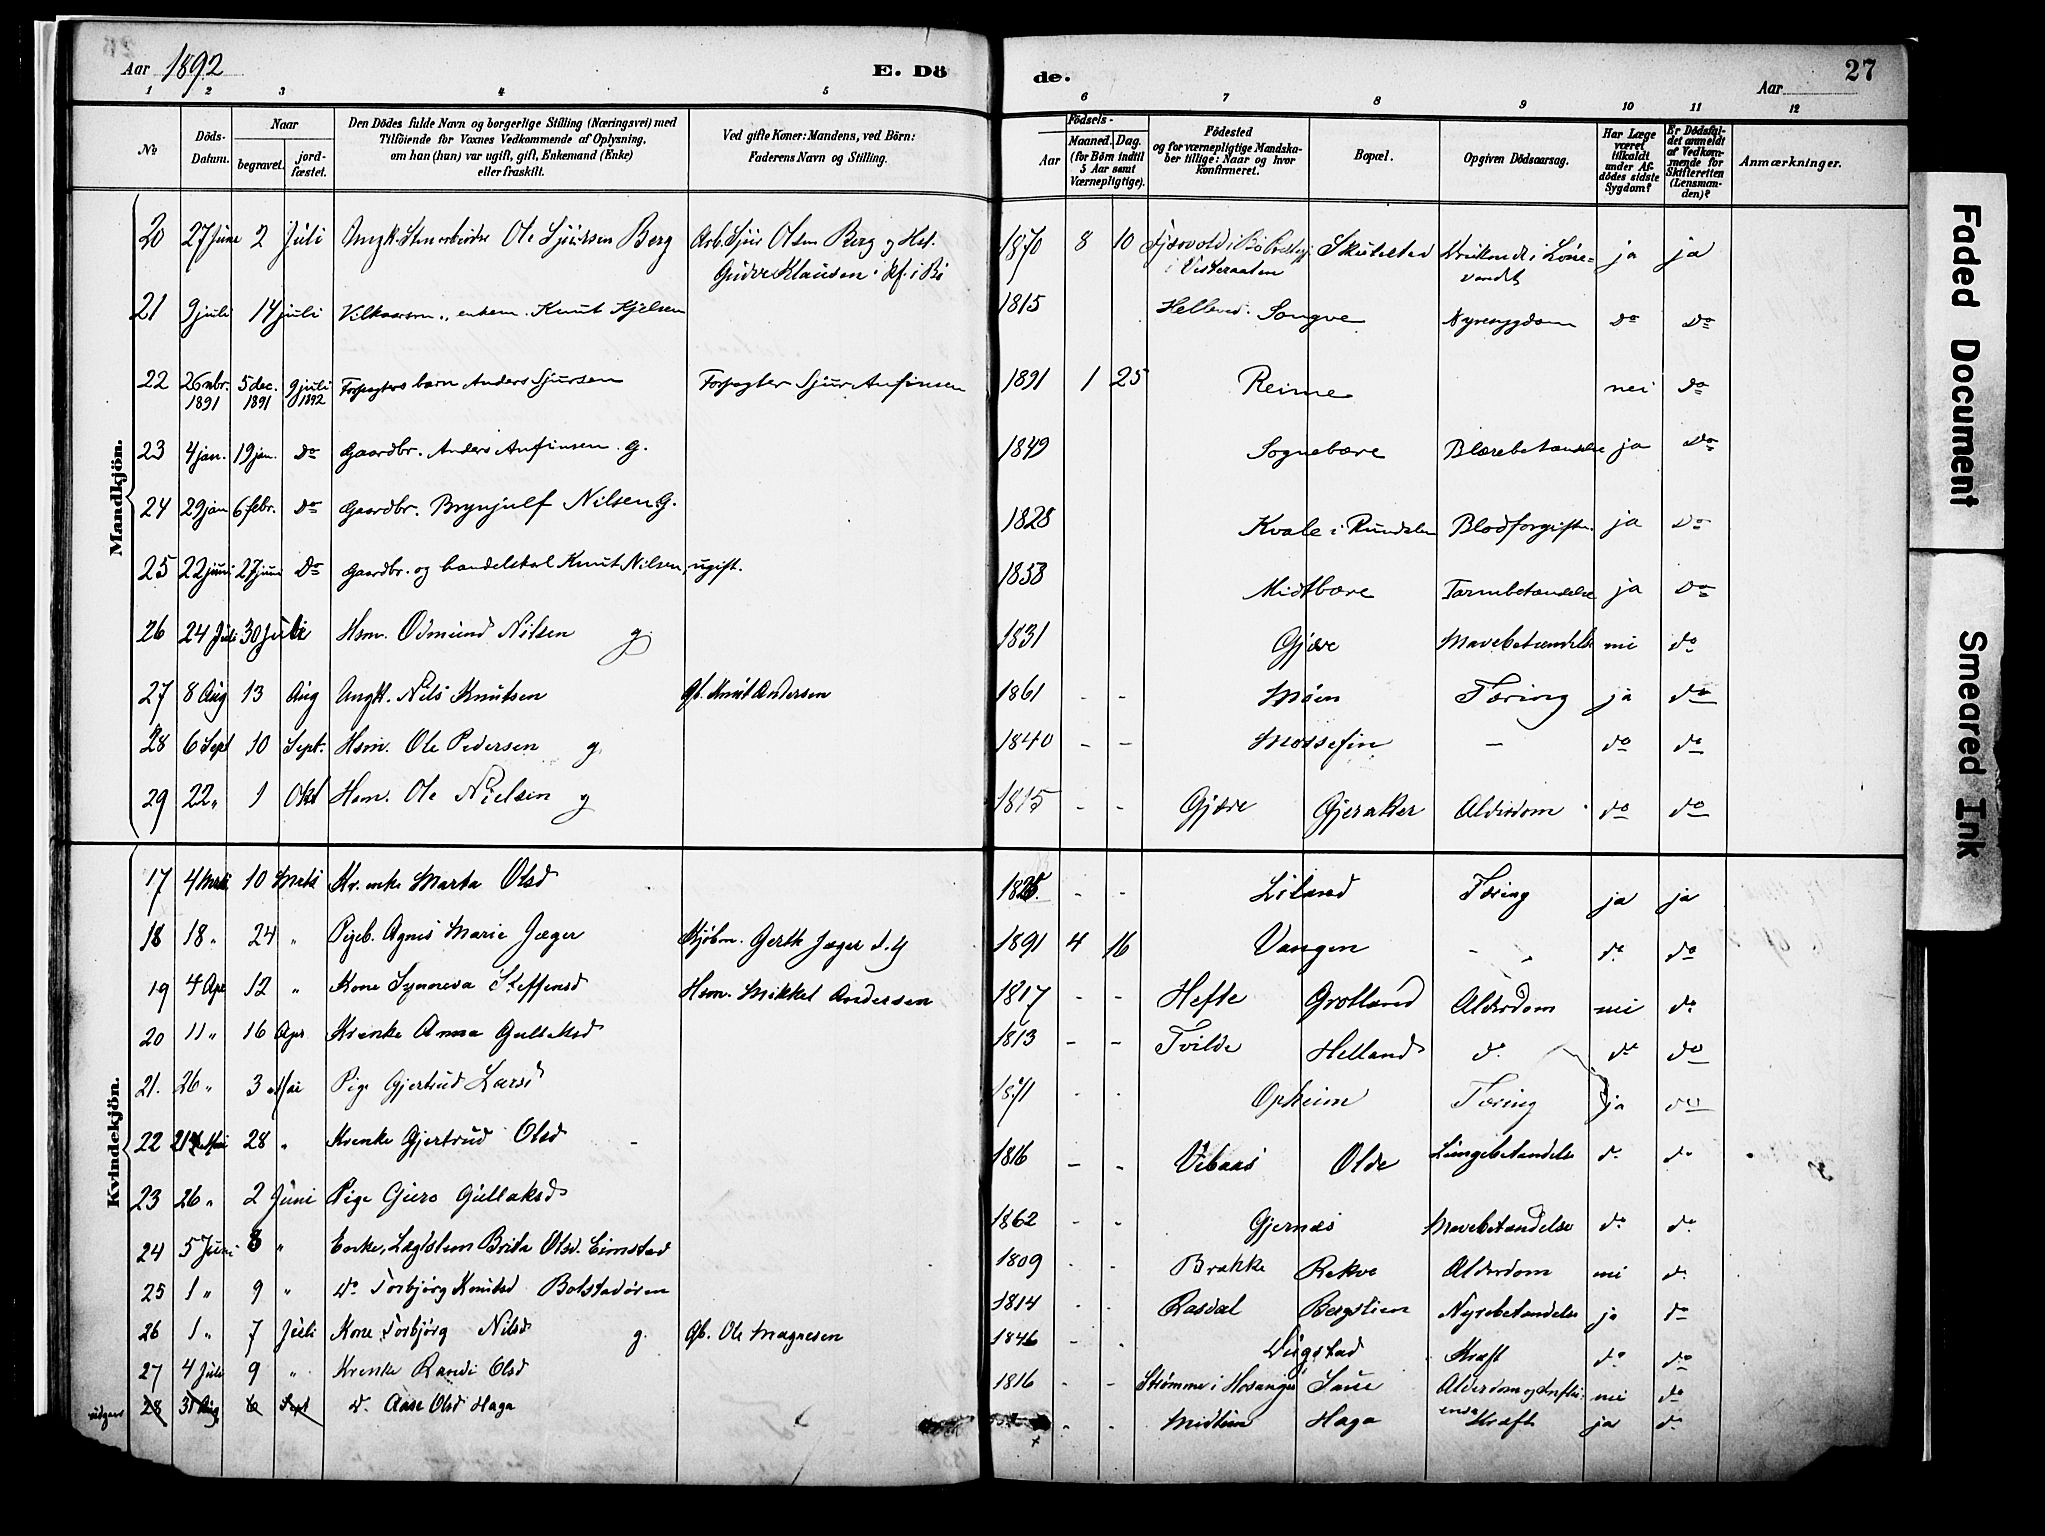 Aar 1892
E. Dö
de.
27
Aar
1 2 3 4 5 6 7 8 9 10 11 12
No
Döds-Datum.
Naar
begravet.
jord-fæstet.
Den Dödes fulde Navn og borgerlige Stilling (Næringsvei) med
Tilföiende for Voxnes Vedkommende af Oplysning,
om han (hun) var ugift, gift, Enkemand (Enke)
eller fraskilt.
Ved gifte Koner: Mandens, ved Börn:
Faderens Navn og Stilling.
Födsels-
Aar
Maaned. Dag.
(for Börn indtil
5 Aar samt
Værnepligtige).
Födested
og for værnepligtige Mandska-
ber tillige: Naar og hvor
konfirmeret.
Bopæl.
Opgiven Dödsaarsag.
Har Læge
været
tilkaldt
under Af-
dödes sidste
Sygdom?
Er Dödsfal-
det anmeldt
af Vedkom-
mende for
Skifteretten
(Lensman-
den)?
Anmærkninger.
Mandkjön.
20 27 June 2 Juli Ungk. Stenarbeider Ole Sjursen Berg Arb. Sjur Olsen Berg og Hst. 1870 8 10 Skutestad Druknede i Lone- ja ja
Gudve Klausen i Bö i Vesteraalen vandet
21 9 juli 14 juli Vilkaarsm., enkem. Knut Kjelsen 1815 Helleved. Songve Nyresygdom do do
22 26 nbr. 5 dec. 9 juli Forpagters barn Anders Sjursen Forpagter Sjur Anfinsen 1891 1 25 Reime nei do
1891 1891 1892
23 4 jan. 19 jan. do Gaardbr. Anders Anfinsen. g. 1849 Sognebære Blærebetændelse ja do
24 29 jan 6 febr. do Gaardbr. Brynjulf Nilsen G. 1828 Kvale i Rundalen Blodforgiftn. ja do
25 22 juni 27 juni do Gaardbr. og handelskal Knut Nilsen, ugift. 1858 Midtbære Tarmbetændelse ja do
26 24 Juli 30 Juli Hsm. Odmund Nilsen g. 1831 Gjære Mavebetændelse nei do
27 8 Aug 13 Aug Ungk. Nils Knutsen Gb. Knut Andersen 1861 - - Möen Tæring ja do
28 6 Sept 10 Sept. Hsm. Ole Pedersen g. 1840 - - Mossefin - do do
29 22 „ 1 Okt Hsm. Ole Nielsen g 1815 - - Gjære Gjeraker Alderdom do do
Kvindekjön.
17 4 Mrts 10 Mrts Kr. enke Marta Olsd - - Liland Tæring ja ja
18 18 „ 24 „ Pigeb. Agnes Marie Jæger Kjöbm. Gerth Jæger d. y 1891 4 16 Vangen - do do
19 4 Apr 12 „ Kone Synneva Steffensd Hsm. Mikkel Andersen 1817 - - Hefte Grotland Alderdom nei do
20 11 „ 16 Apr Krenke Anna Gullaksd 1813 - - Tvilde Helland do do do
21. 26 „ 3 Mai Pige Gjertrud Larsd 1871 - - Opheim Tæring ja do
22 21 Mai 28 „ Krenke Gjertrud Olsd - 1816 - - Vibaas Olde Lungebetændelse do do
23 26 „ 2 Juni Pige Guro Gullaksd 1862 - - Gjernæs Mavebetændelse do do
24 5 Juni 8 „ Enke, Lægdslem Brita Olsd. Eimstad 1809 - - Brakke Rekve Alderdom nei do
25 1 „ 9 „ do Torbjörg Knutsd Bolstadören 1814 - - Rasdal Bergstien Nyrebetændelse ja do
26 1 „ 7 Juli Kone Torbjörg Nilsd g. Gb. Ole Magnesen 1846 - - Dugstad Kræft do do
27 4 Juli 9 „ Krenke Randi Olsd 1816 - - Strömme i Hosanger Saue Alderdom og Influ- nei do
enza
udgaar 28 31 Aug 6 Sept d. Aase Olsd Haga - - Midtun Haga Kræft ja do
Faded Document
Smeared Ink